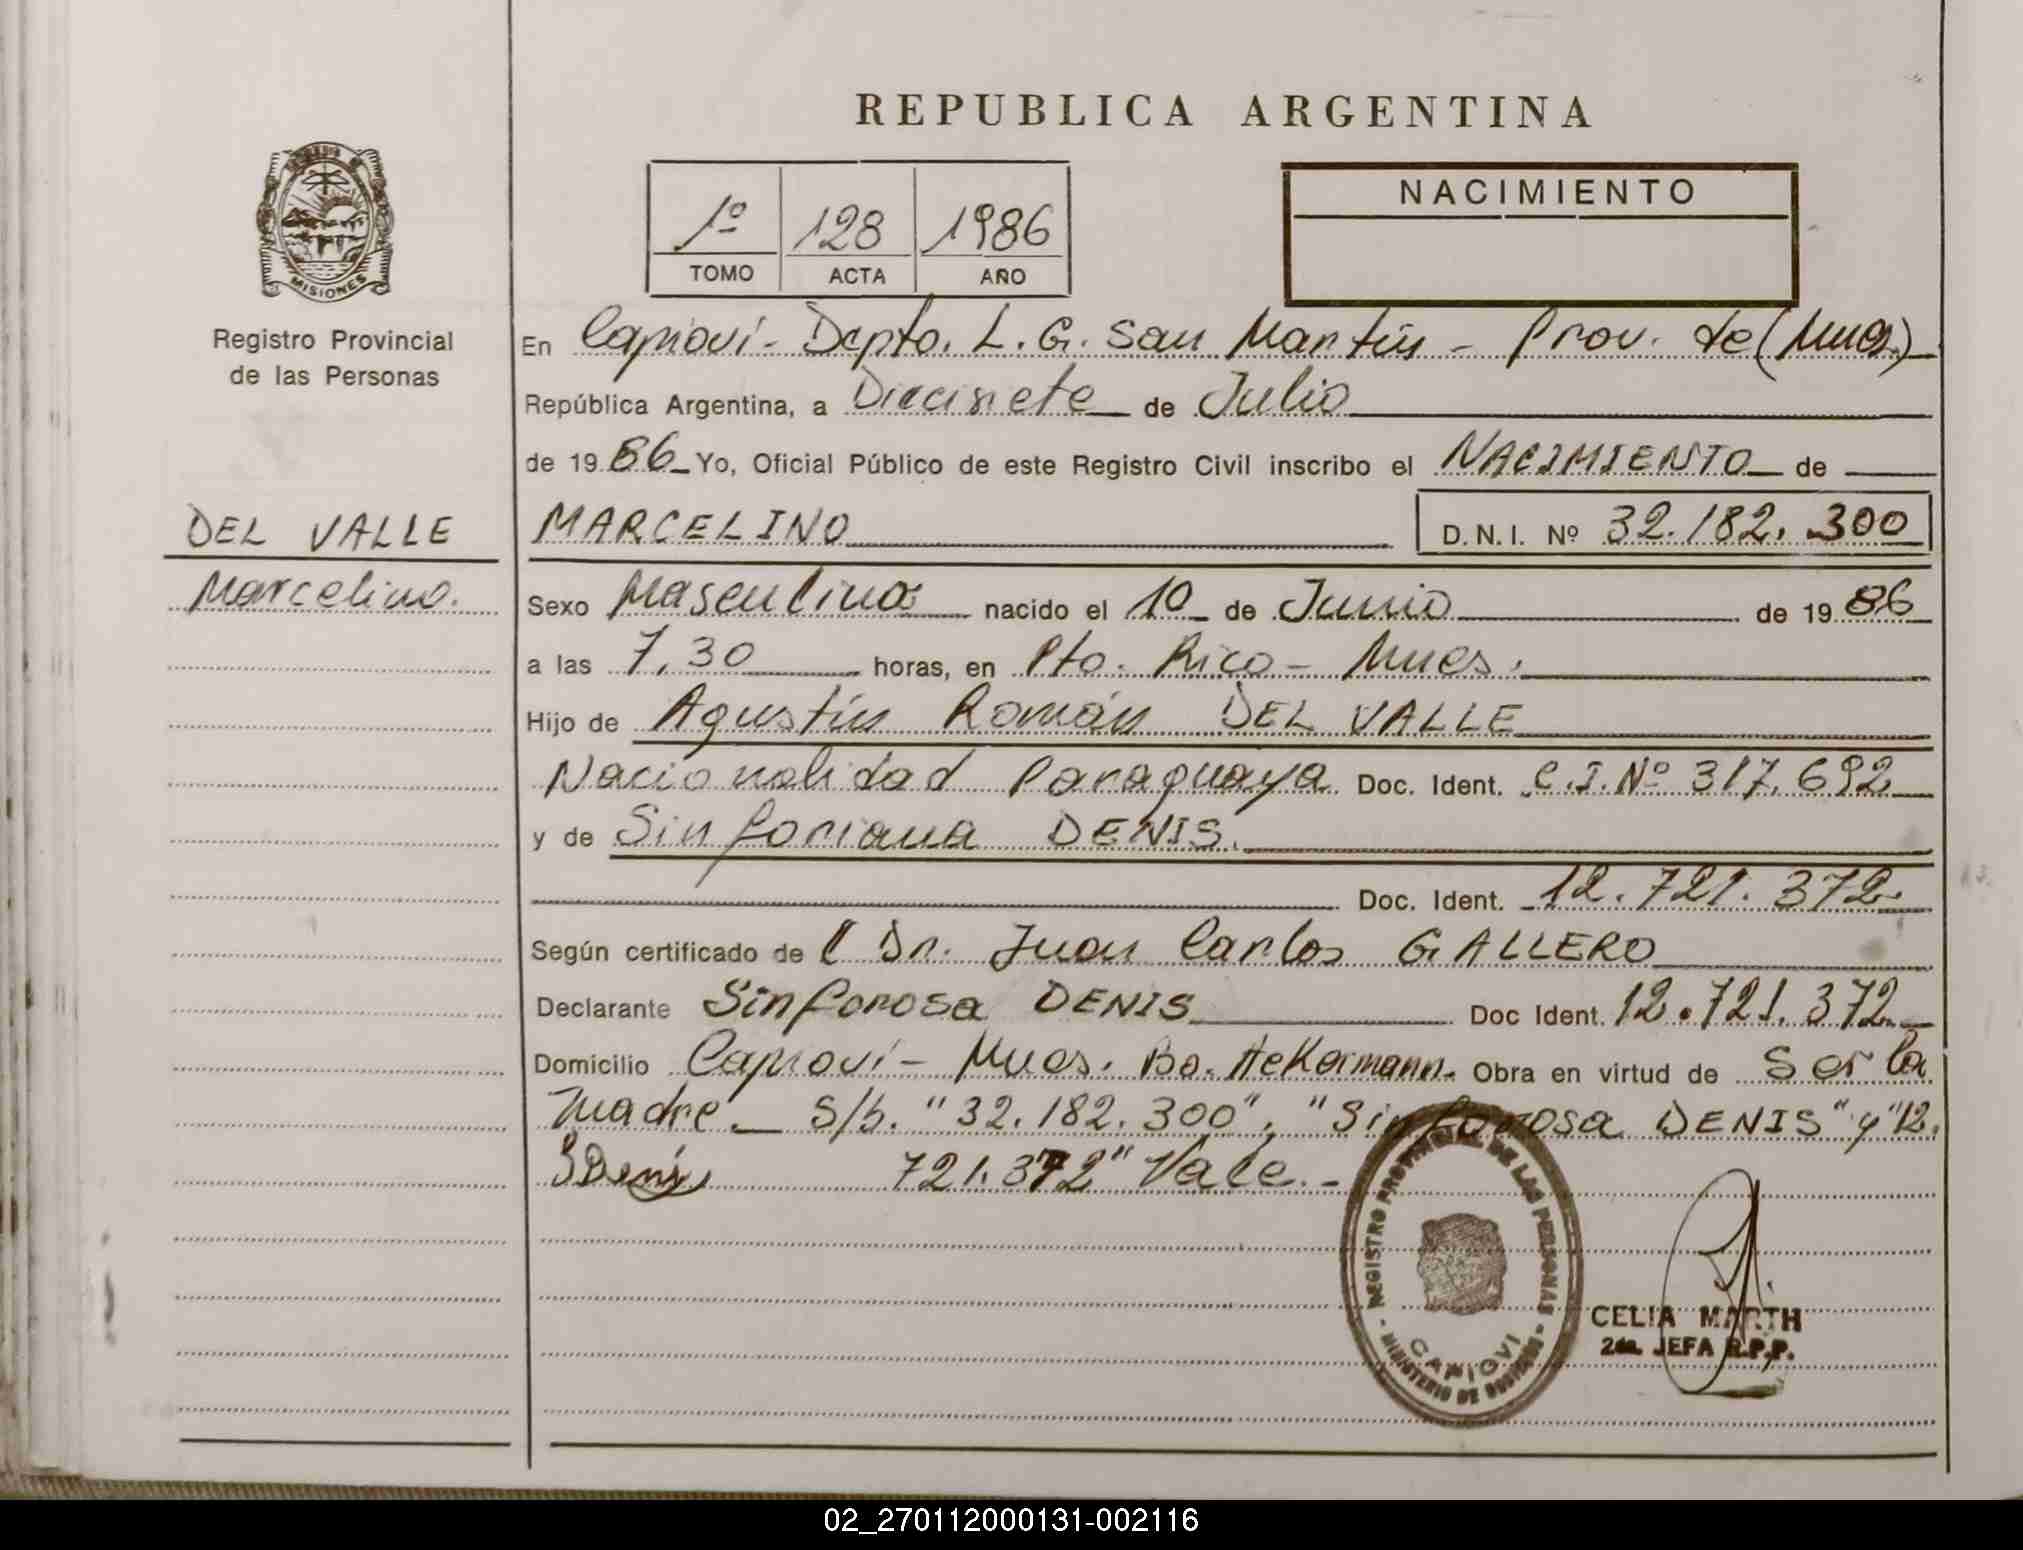 REPUBLICA ARGENTINA
NACIMIENTO
1º 128 1986
TOMO ACTA AÑO
MISIONES
Registro Provincial
de las Personas
En Capioví - Dcpto. L. G. San Martín - Prov. de (Mnes.)
República Argentina, a Diecisiete de Julio
de 19 86 Yo, Oficial Público de este Registro Civil inscribo el NACIMIENTO de
DEL VALLE
Marcelino.
MARCELINO D.N.I. Nº 32.182.300
Sexo Masculino nacido el 10 de Junio de 19 86
a las 7,30 horas, en Pto. Rico - Mnes.
Hijo de Agustín Román DEL VALLE
Nacionalidad Paraguaya Doc. Ident. C.I.Nº 317.692
y de Sinforiana DENIS.
Doc. Ident. 12.721.372
Según certificado de Dr. Juan Carlos GALLERO
Declarante Sinforosa DENIS Doc Ident. 12.721.372
Domicilio Capioví - Mnes. Bo. AeKermann. Obra en virtud de Ser la
Madre. S/b. "32.182.300", "Sinforosa DENIS" y "12.
SDenis 721.372" Vale. -
REGISTRO PROVINCIAL DE LAS PERSONAS
CAPIOVI
- MINISTERIO DE GOBIERNO -
CELIA MARTH
2da. JEFA R.P.P.
02_270112000131-002116